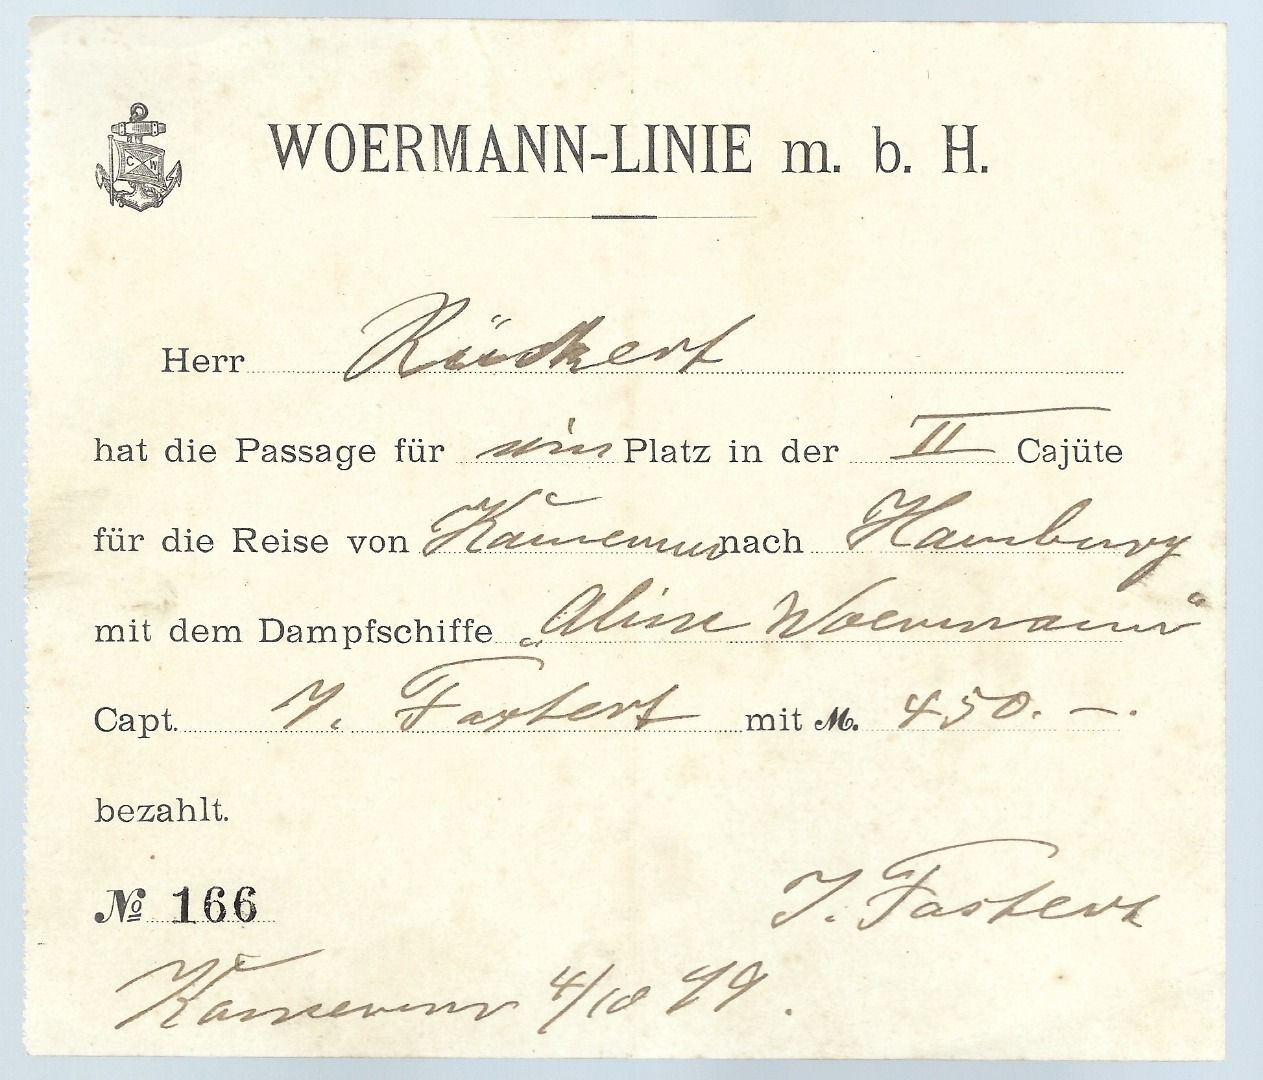 C W
WOERMANN-LINIE m. b. H.
Herr Rückert
hat die Passage für ein Platz in der II Cajüte
für die Reise von Kamerun nach Hamburg
mit dem Dampfschiffe „Aline Woermann“
Capt. J. Fastert mit M. 450. —.
bezahlt.
№ 166
J. Fastert
Kamerun 4/10 99.